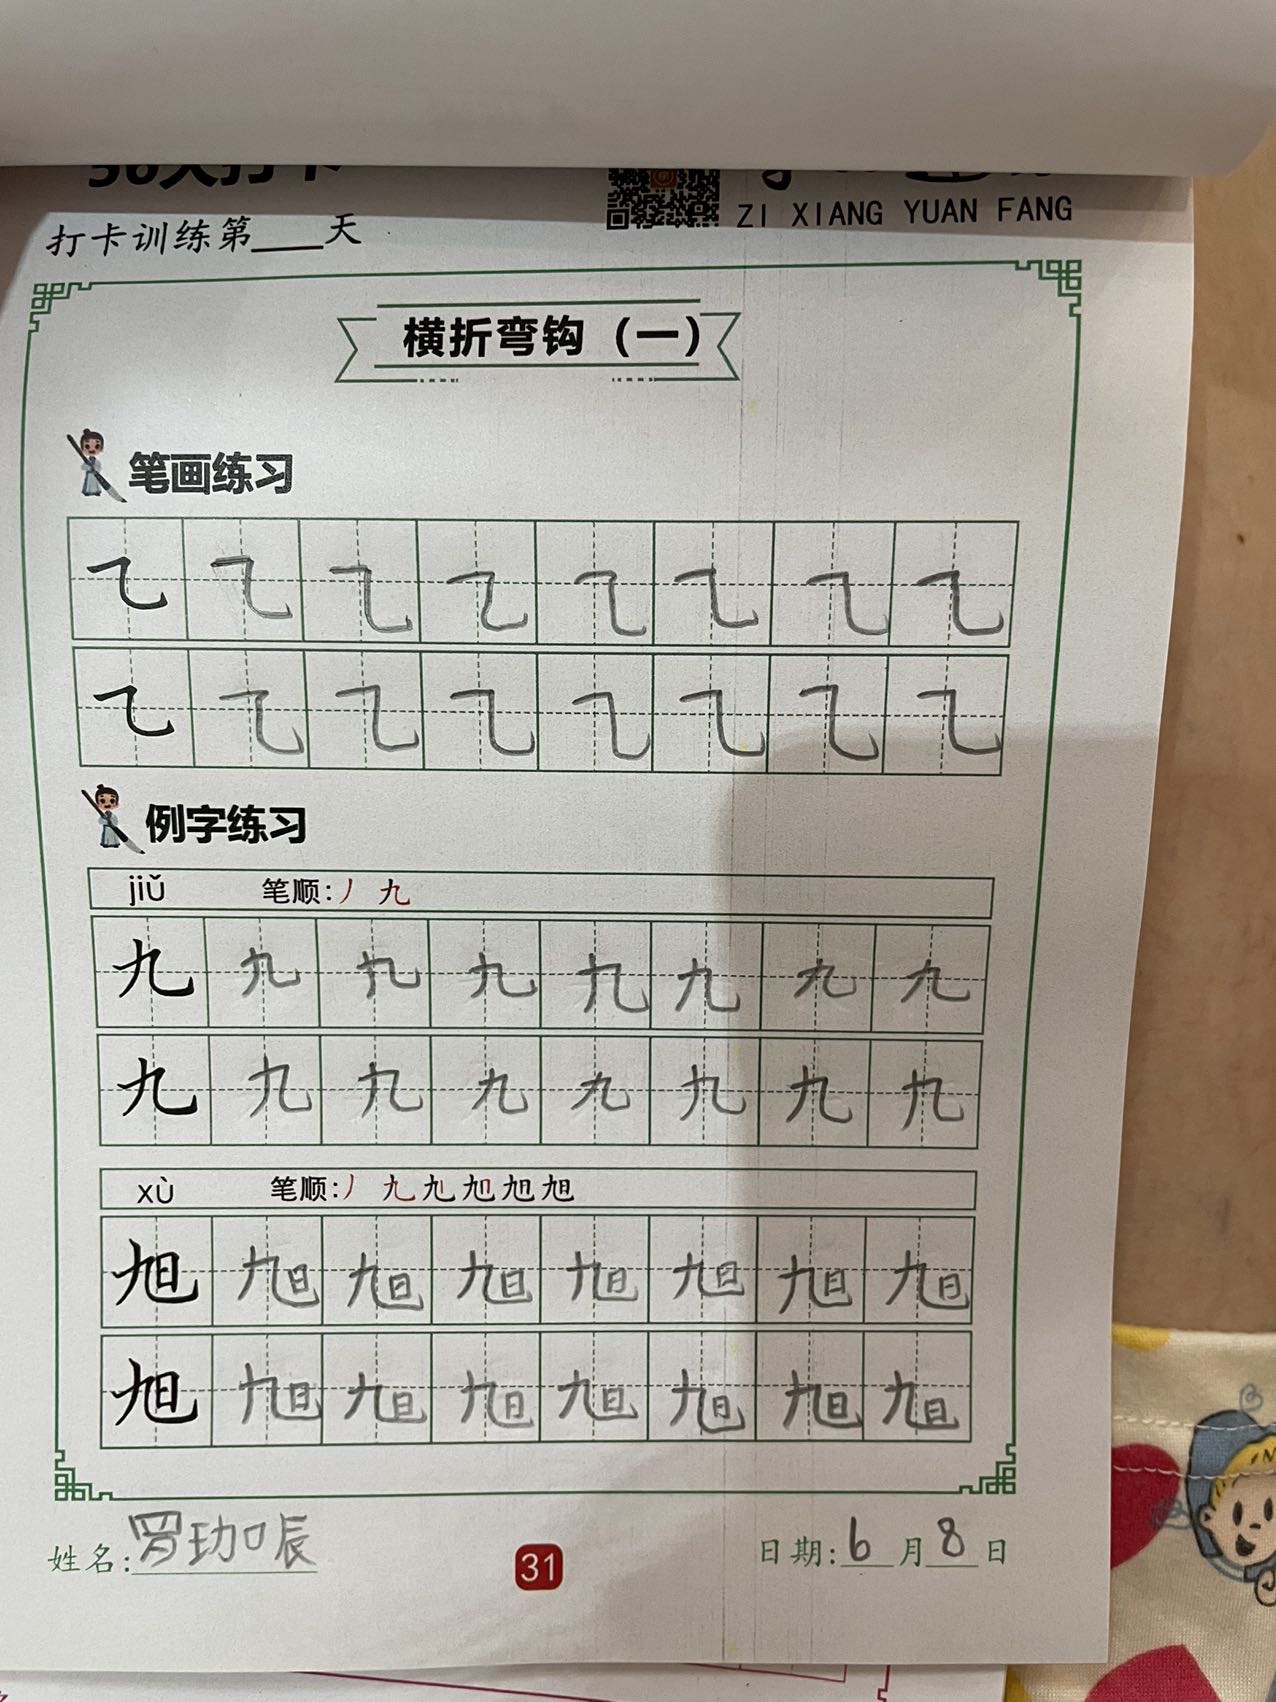 ZI XIANG YUAN FANG
打卡训练第____天
横折弯钩（一）
笔画练习
㇈ ㇈ ㇈ ㇈ ㇈ ㇈ ㇈ ㇈
㇈ ㇈ ㇈ ㇈ ㇈ ㇈ ㇈ ㇈
例字练习
jiǔ 笔顺：丿 九
九 九 九 九 九 九 九 九
九 九 九 九 九 九 九 九
xù 笔顺：丿 九 旭 旭 旭 旭
旭 旭 旭 旭 旭 旭 旭 旭
旭 旭 旭 旭 旭 旭 旭 旭
姓名：罗玏口辰
31
日期：6月8日